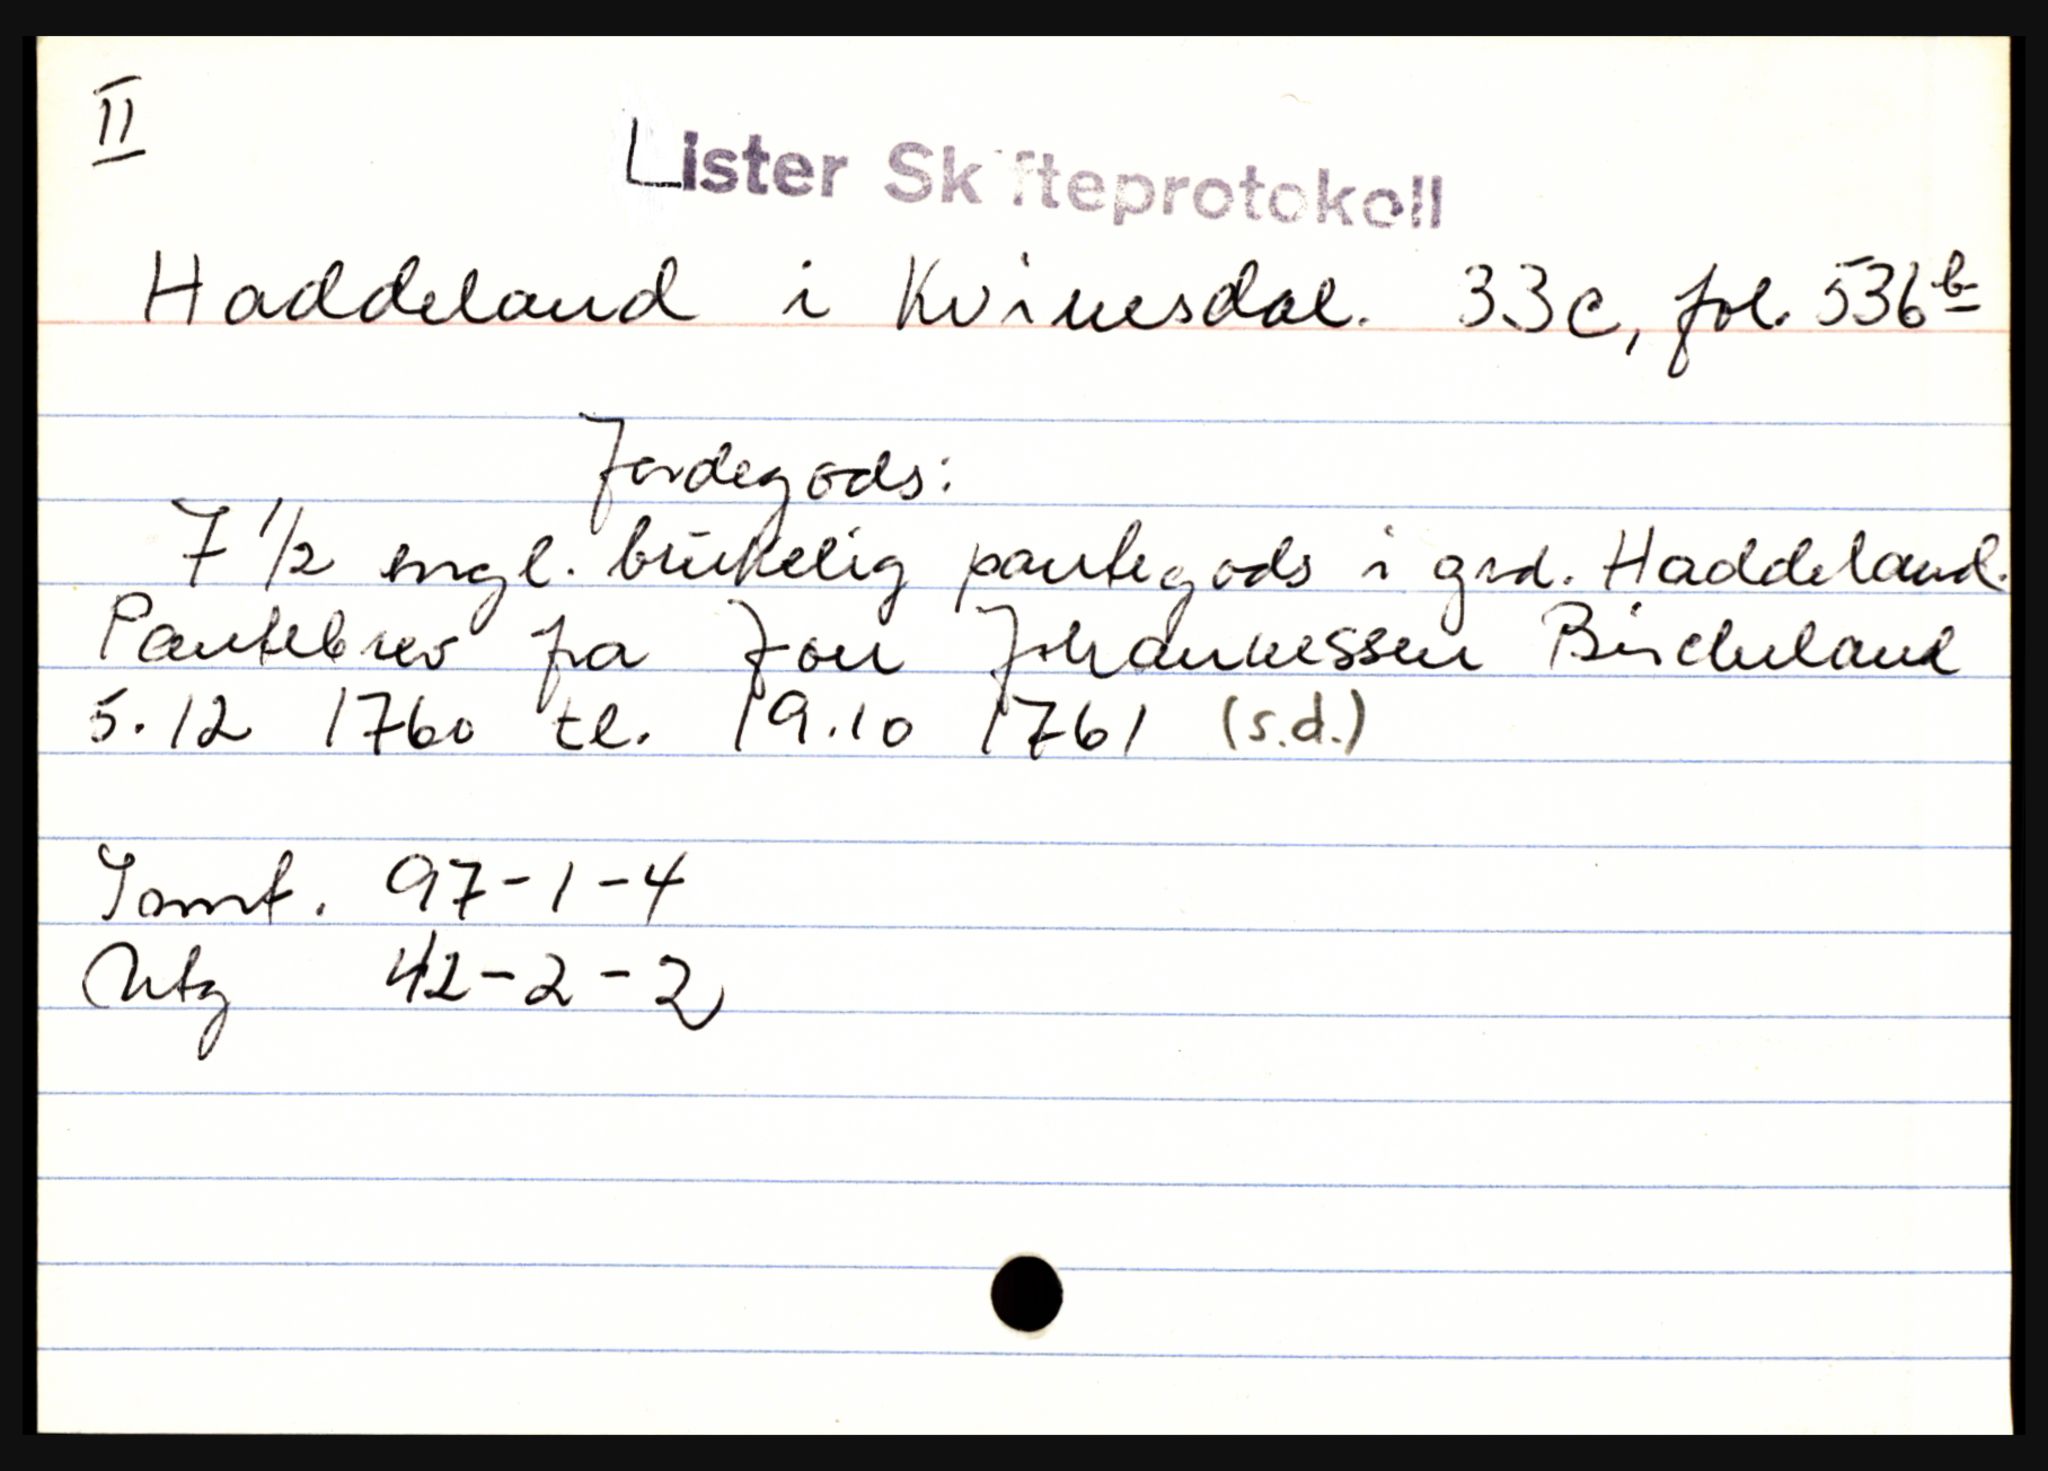 II
Lister Skifteprotokoll
Haddeland i Kvinesdal. 33c, fol. 536b
Jordegods:
7 1/2 engl. brükelig pantegods i grd. Haddeland.
Pantebrev fra Jon Johannessen
5.12 1760 tl. 19.10 1761 (s.d.)
Iomt. 97-1-4
Utg 42-2-2